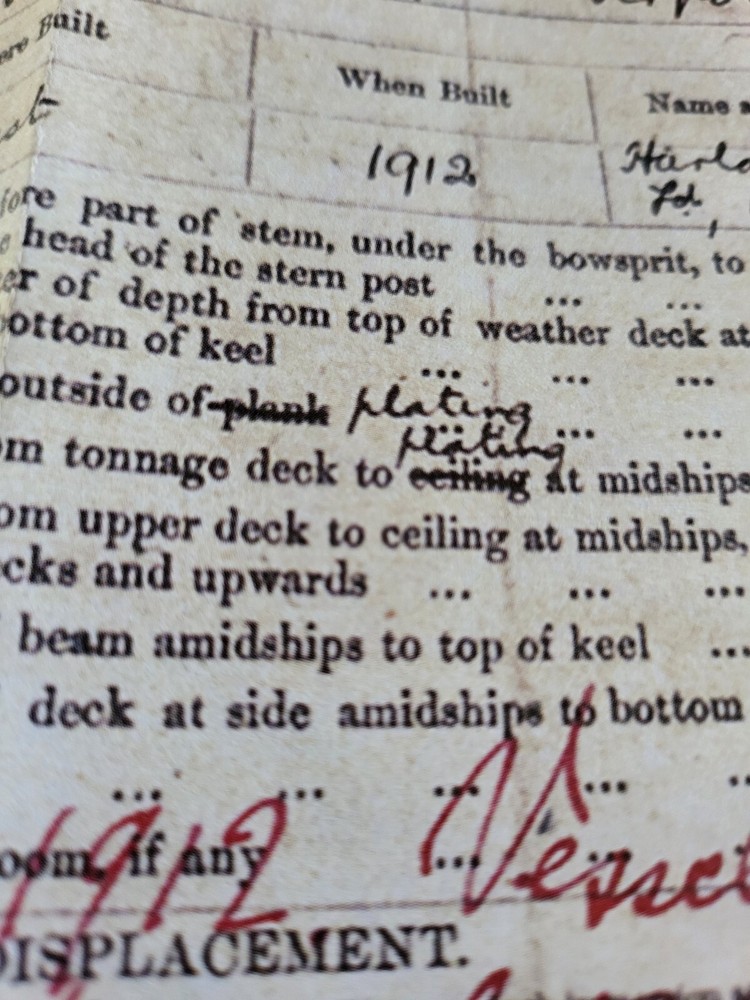 Built
When Built
Name
1912
part of stem, under the bowsprit, to
head of the stern post ... ...
of depth from top of weather deck at
bottom of keel ... ... ...
outside of plank plating ... ...
plating
tonnage deck to ceiling at midships
upper deck to ceiling at midships,
and upwards ... ... ...
beam amidships to top of keel ...
deck at side amidships to bottom
... ... ... ...
if any ...
1912 Vessel
DISPLACEMENT.